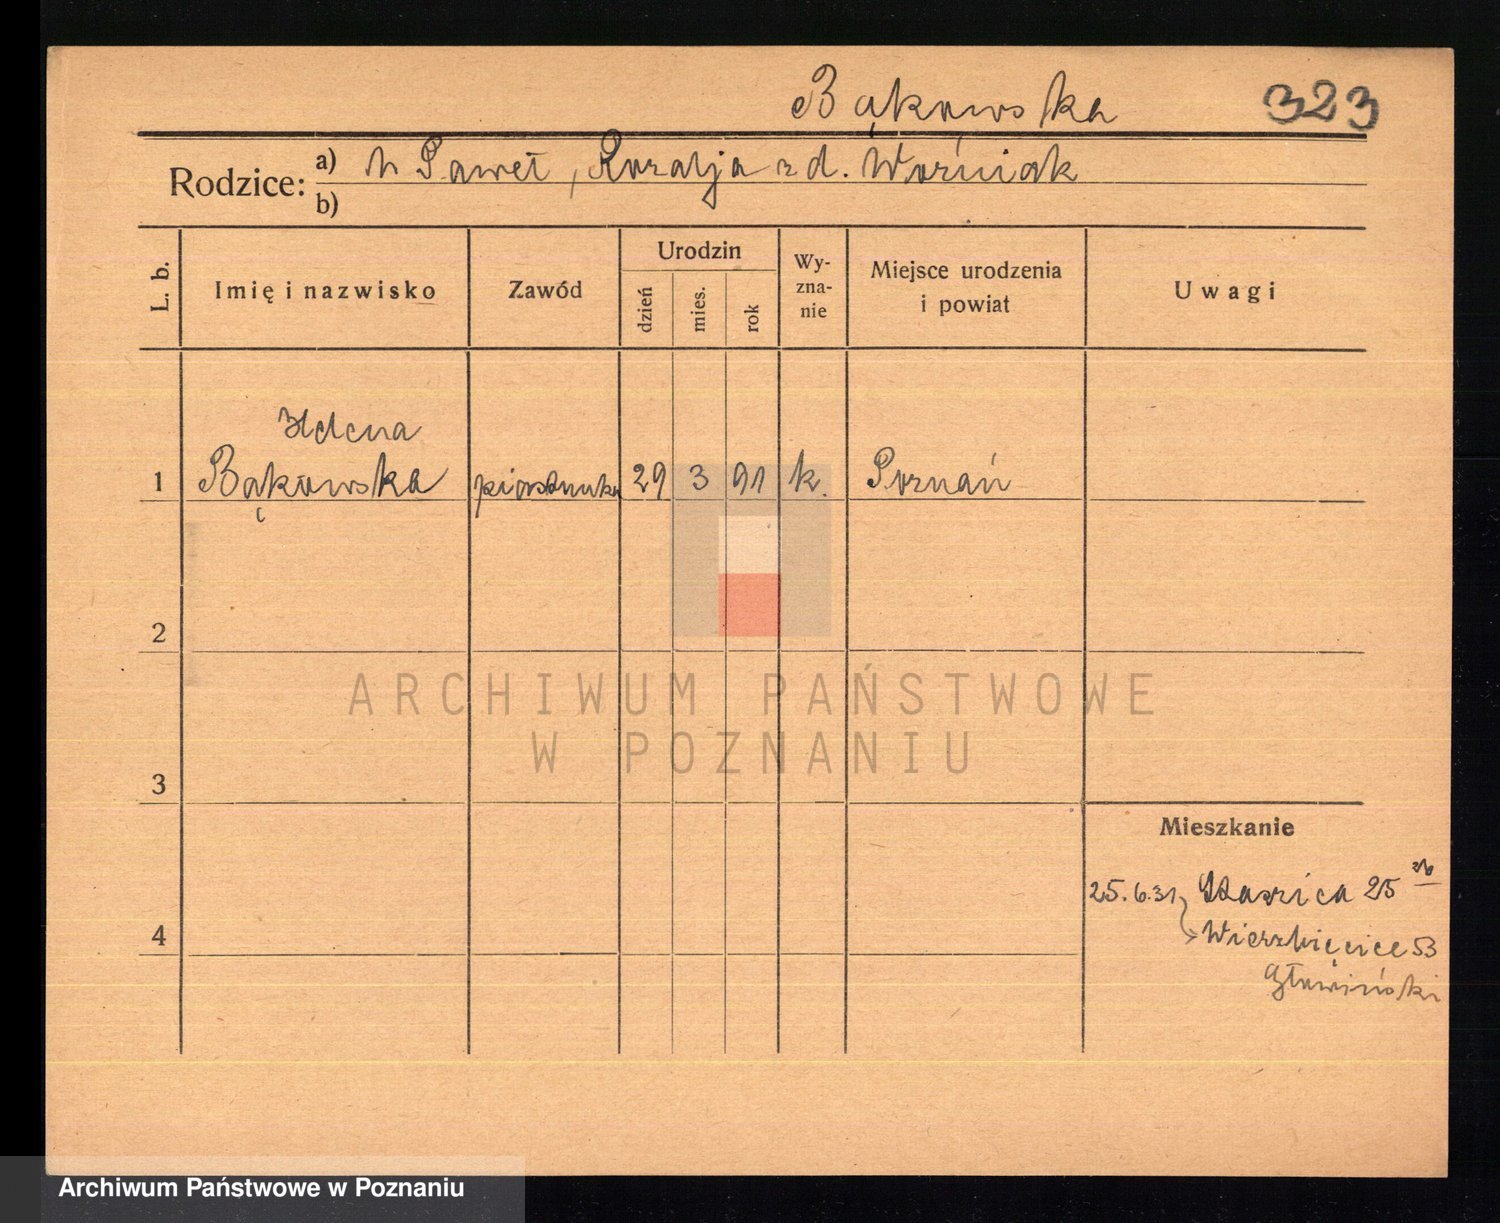 Bąkowska 323
Rodzice: a) Paweł, Rozalja zd. Woźniak
b)
L. b. Imię i nazwisko Zawód Urodzin dzień mies. rok Wy-zna-nie Miejsce urodzenia i powiat Uwagi
Helena
1 Bąkowska 29 3 91 k. Poznań
2
3
Mieszkanie
25.6.31 Staszica 25
4 Wierzbięcice 53
Głowiński
ARCHIWUM PAŃSTWOWE
W POZNANIU
Archiwum Państwowe w Poznaniu